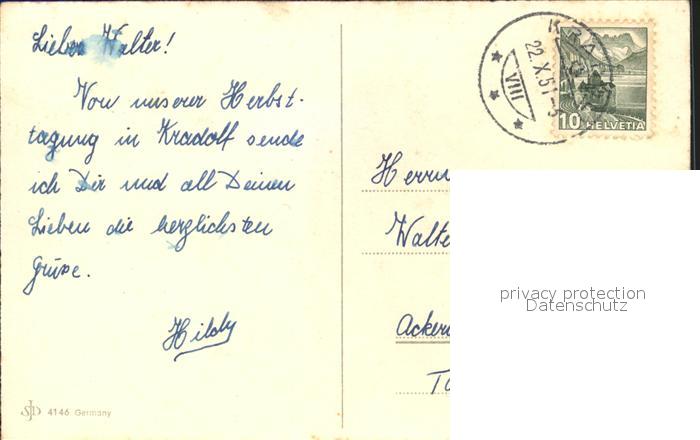 Lieber Walter!
Von unserer Herbst-
tagung in Kradolf sende
ich Dir und all Deinen
Lieben die herzlichsten
Grüsse.
Hildy
4146 Germany
KRA
22.X.51-
VIII
10 HELVETIA
Herrn
Walte
Acker
privacy protection
Datenschutz